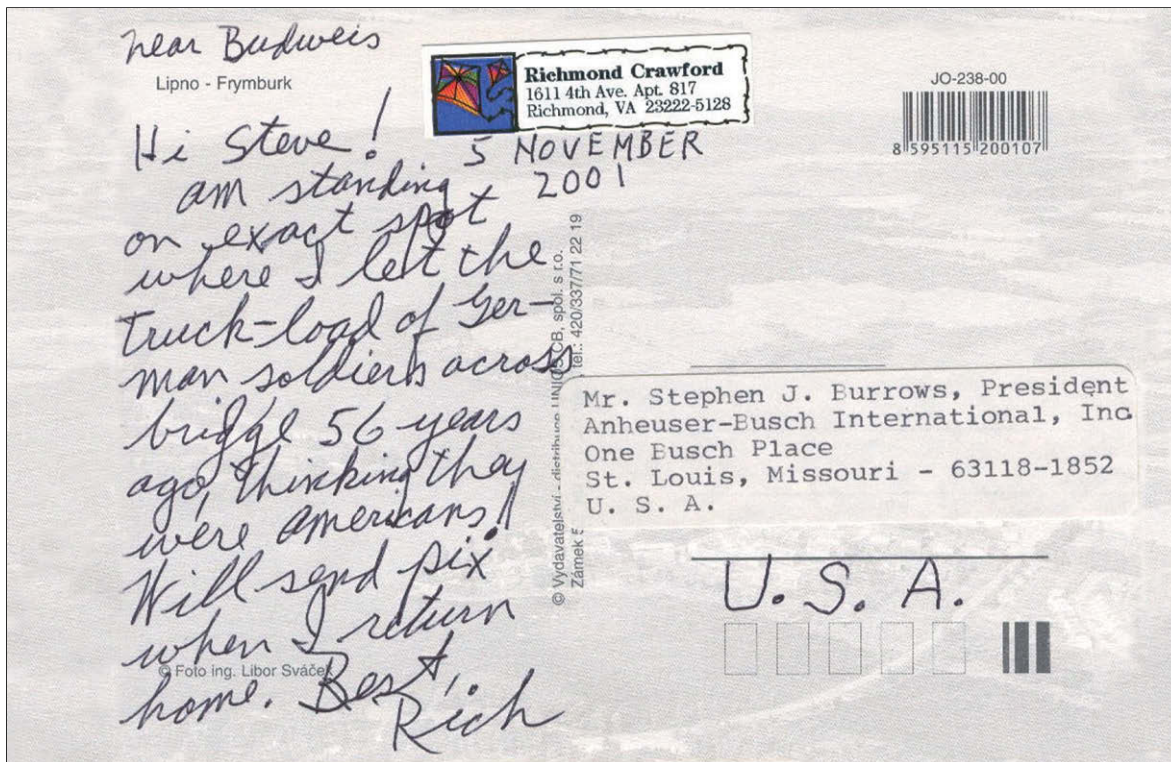 near Budweis
Lipno - Frymburk
Richmond Crawford
1611 4th Ave. Apt. 817
Richmond, VA 23222-5128
JO-238-00
8 595115 200107
5 NOVEMBER
2001
Hi Steve!
am standing
on exact spot
where I let the
truck-load of Ger-
man soldiers across
bridge 56 years
ago, thinking they
were americans!
Will send pix
when I return
home. Best,
Rich
© Foto ing. Libor Sváček
© Vydavatelství - distribuce UNIOS CB, spol. s r.o.
Zámek 5 tel.: 420/337/71 22 19
Mr. Stephen J. Burrows, President
Anheuser-Busch International, Inc.
One Busch Place
St. Louis, Missouri - 63118-1852
U. S. A.
U. S. A.